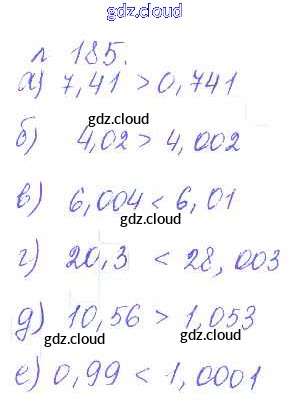 gdz.cloud
л 185.
а) 7,41 > 0,741
gdz.cloud
б) 4,02 > 4,002
в) 6,004 < 6,01
gdz.cloud
gdz.cloud
г) 20,3 < 28,003
gdz.cloud
д) 10,56 > 1,053
gdz.cloud
gdz.cloud
е) 0,99 < 1,0001